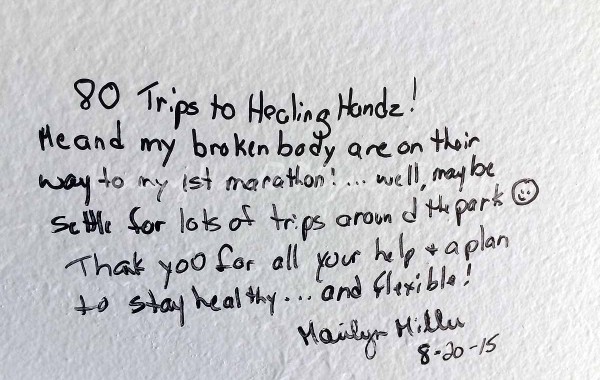 80 Trips to Healing Handz!
Me and my broken body are on their
way to my 1st marathon! ... well, maybe
settle for lots of trips around the park ☺
Thank yoo for all your help + a plan
to stay healthy... and flexible!
Marilyn Miller
8-20-15